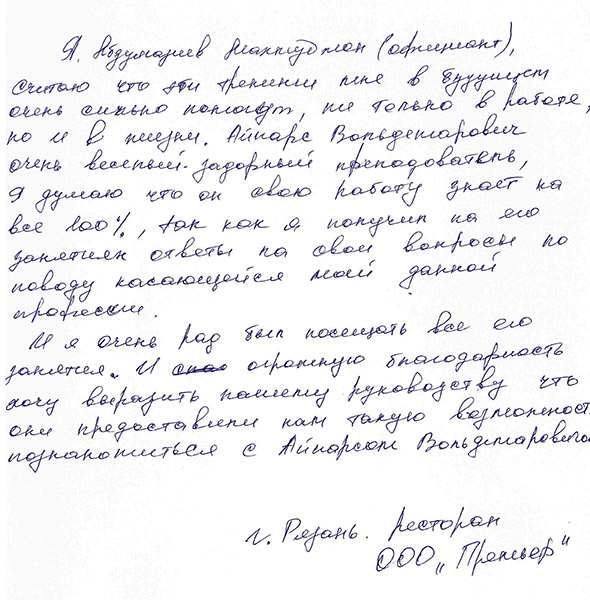 Я, Абдумариев Махмуджан (официант),
считаю что эти тренинги мне в будущем
очень сильно помогут, ни только в работе,
но и в жизни. Айнарс Вольдемарович
очень веселый-задорный преподаватель,
Я думаю что он свою работу знает на
все 100%, так как я получил на его
занятиях ответы на свои вопросы по
поводу касающейся моей данной
професии.
И я очень рад был посещать все его
занятия. И огромную благодарность
хочу выразить нашему руководству что
они предоставили нам такую возможность
познакомиться с Айнарсом Вольдемаровичом
г. Рязань. ресторан
ООО „Премьер"